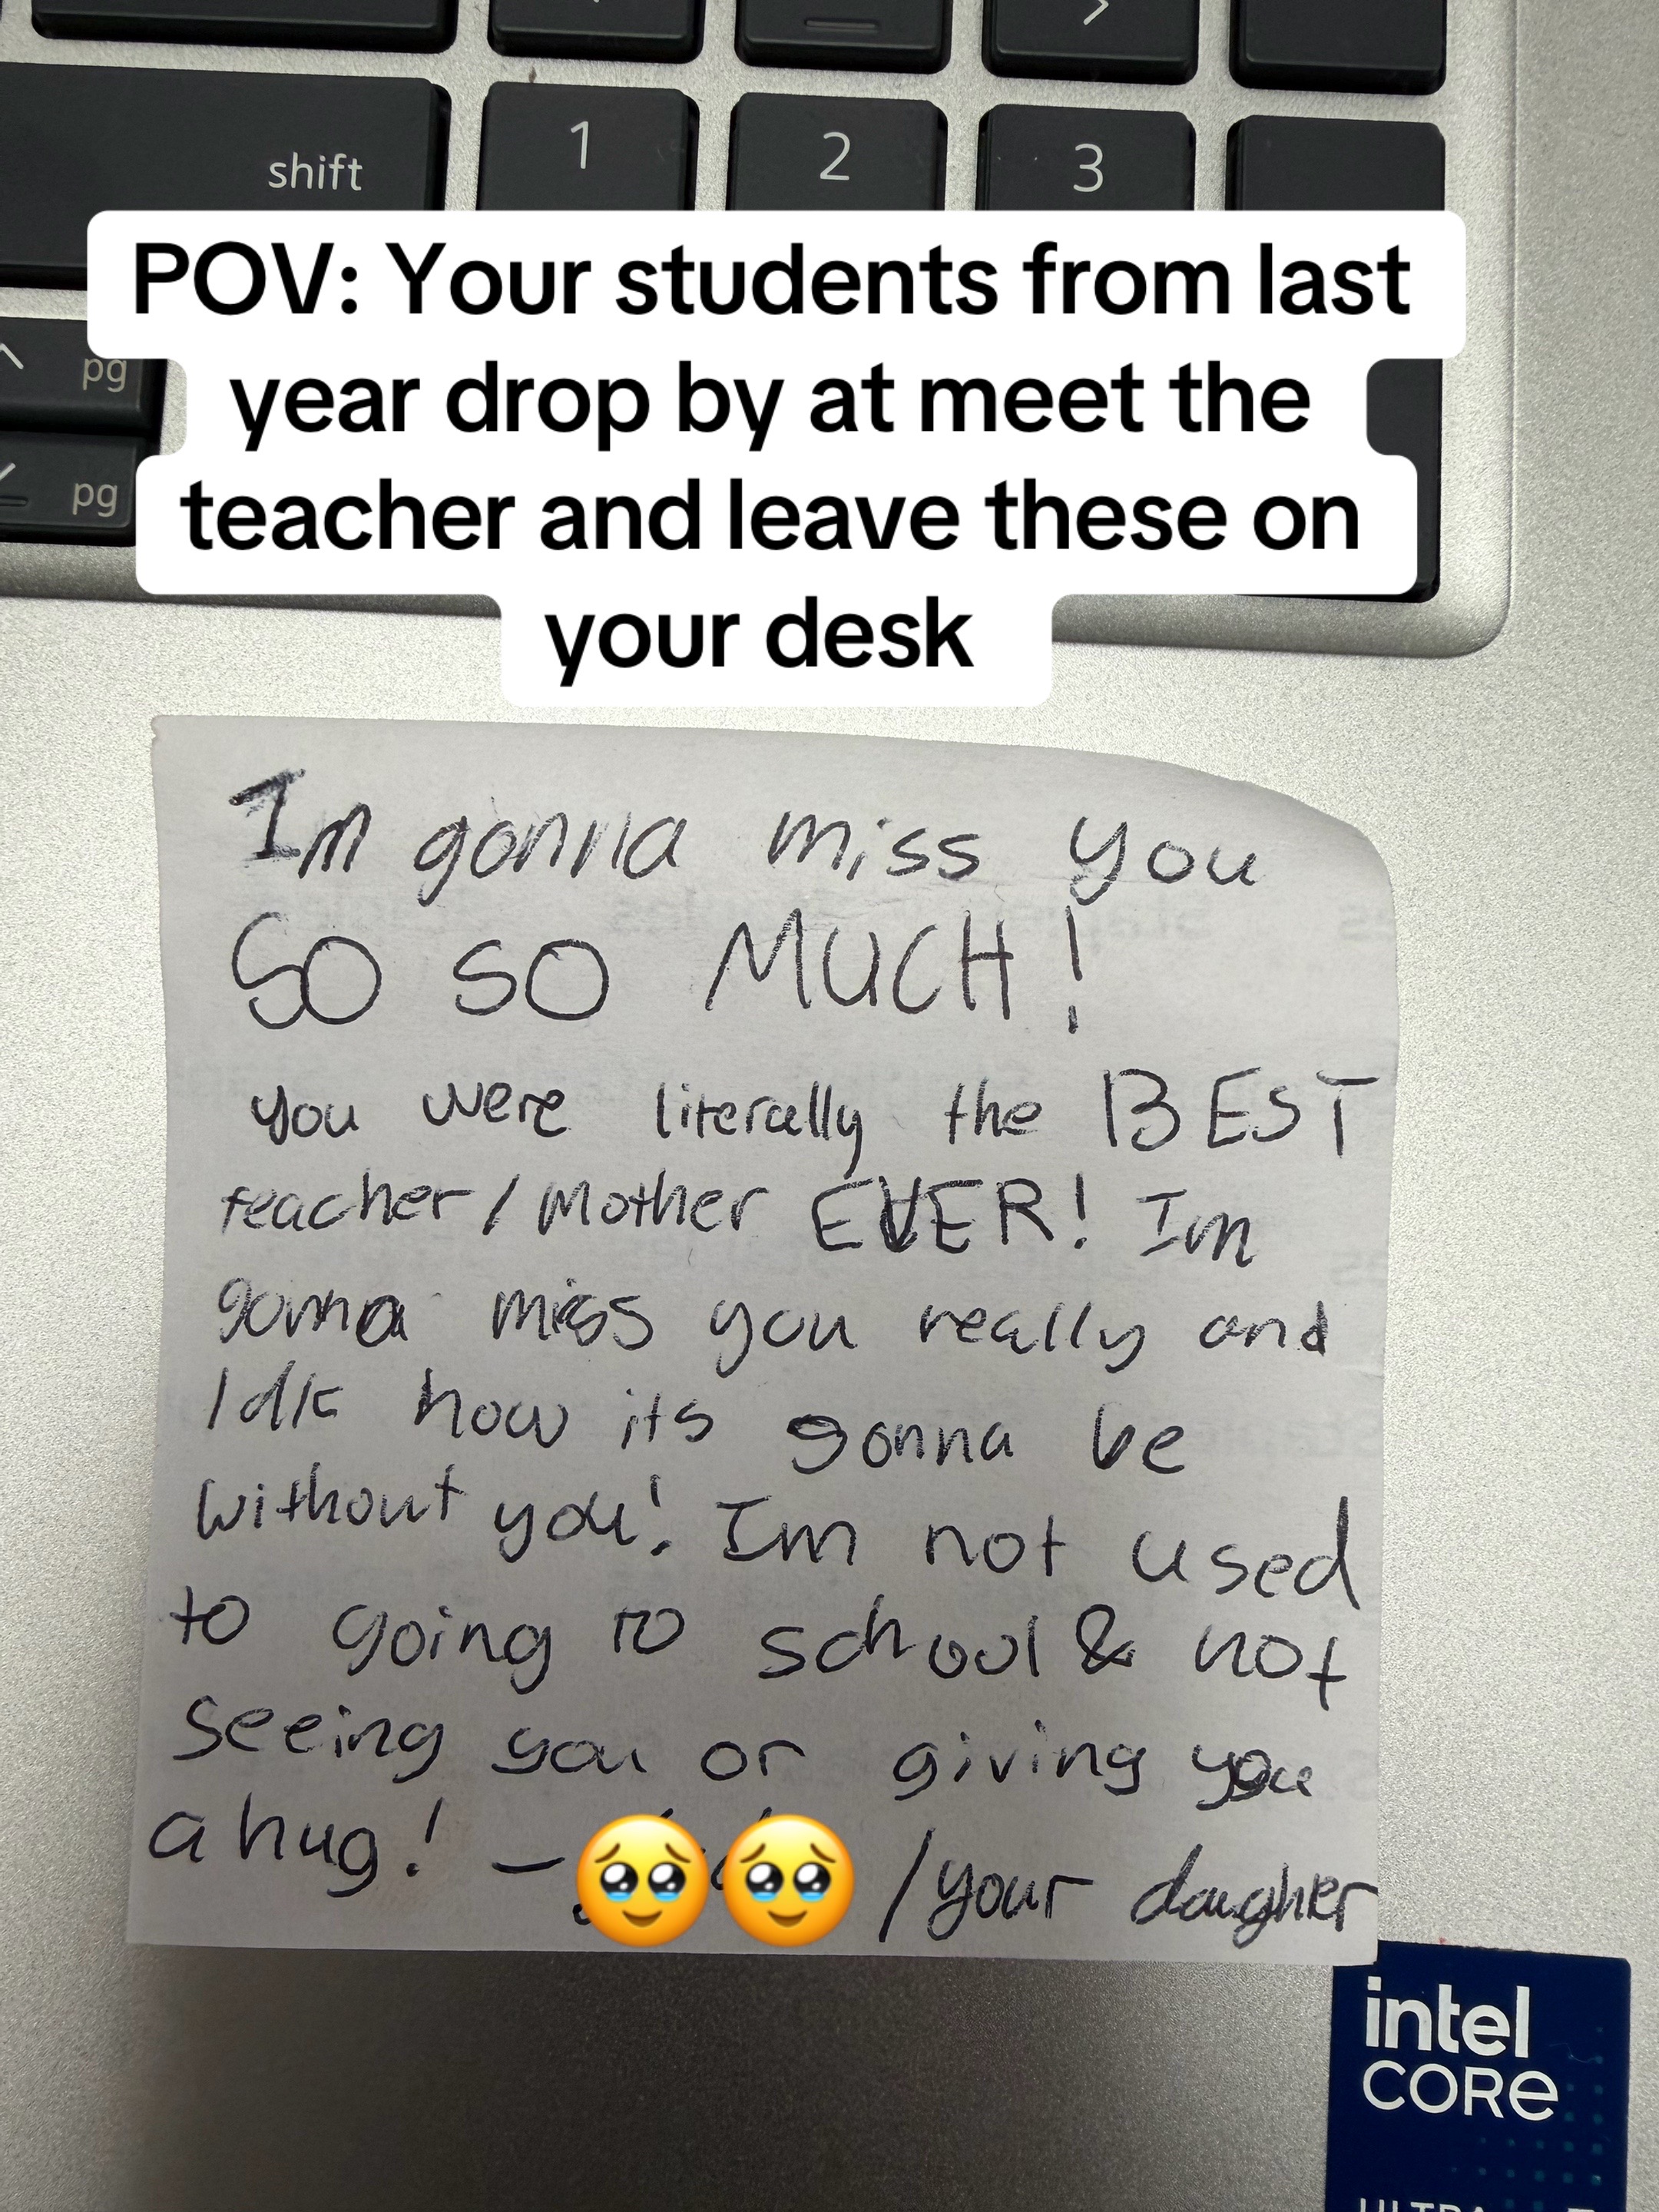 shift
1
2
3
pg
pg
POV: Your students from last
year drop by at meet the
teacher and leave these on
your desk
Im gonna miss you
SO SO MUCH!
you were literally the BEST
teacher/Mother EVER! Im
gonna miss you really and
Idk how its gonna be
without you! Im not used
to going to school & not
seeing you or giving you
a hug! — /your daugher
intel
CORE